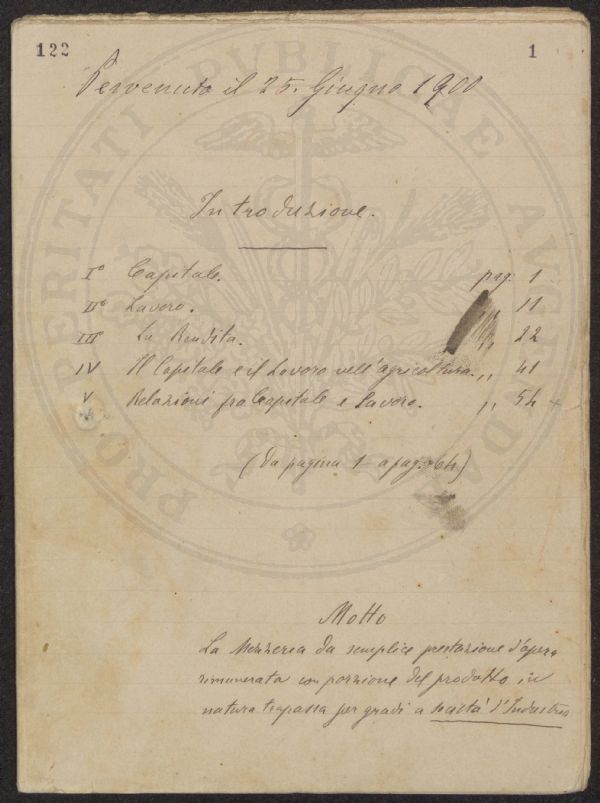 122
1
Pervenuto il 25. Giugno 1900
Introduzione.
I° Capitale. pag. 1
II° Lavoro. „ 11
III° La Rendita. „ 22
IV Il Capitale e il Lavoro nell'agricoltura. „ 41
V Relazioni fra Capitale e Lavoro. „ 54
(Da pagina 1 a pag. 64)
Motto
La Mezzeria da semplice prestazione d'opera
rimunerata con porzione del prodotto in
natura trapassa per gradi a società d'Industria
PROSPERITATI PVBLICAE AVGENDAE